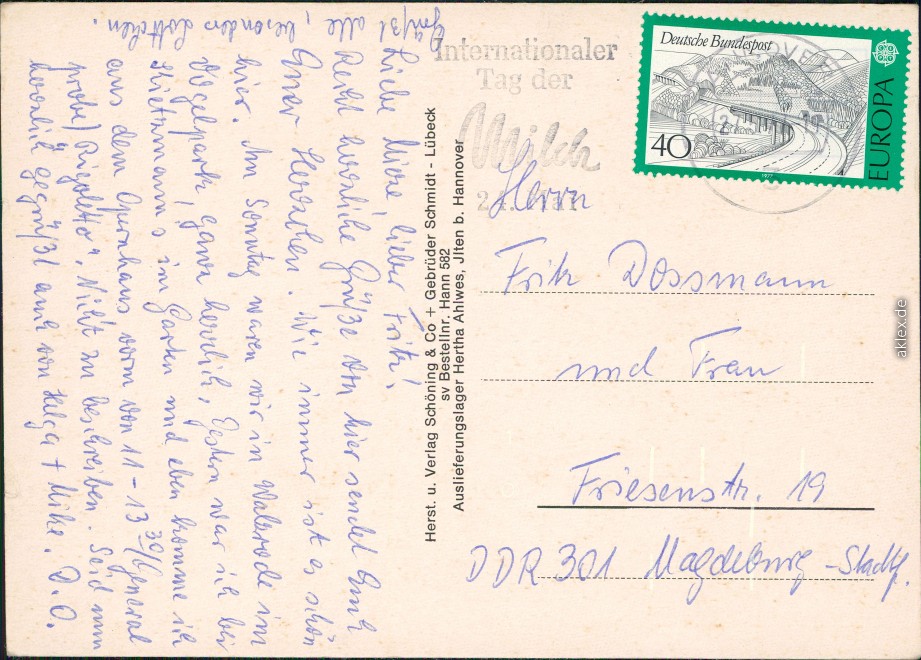 Liebe Miere, lieber Fritz!
Recht herzliche Grüße von hier sendet Euch
Euer Herzchen. Wie immer ist es schön
hier. Am Sonntag waren wir in Walsrode im
Vogelpark, ganz herrlich, Gestern war ich bei
in Garten und eben komme ich
aus dem Opernhaus vorn von 11 - 13 30 (General
probe) "Rigoletto". Nicht zu beschreiben. Seid nun
herzlich gegrüßt auch von Helga + Mike. D. O.
Grüßt alle, besonders Lottchen.
Herst. u. Verlag Schöning & Co + Gebrüder Schmidt - Lübeck
sv Bestellnr. Hann 582
Auslieferungslager Hertha Ahlwes, Jlten b. Hannover
Internationaler
Tag der
Milch
Deutsche Bundespost
40
EUROPA
1977
Herrn
Fritz Dossmann
und Frau
Friesenstr. 19
DDR 301 Magdeburg - Stadtf.
aklex.de